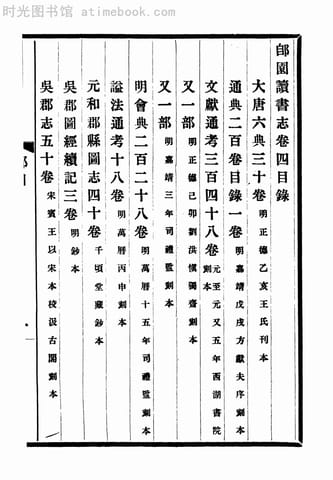 时光图书馆 atimebook.com
郋園讀書志卷四目錄
大唐六典三十卷 明正德乙亥王氏刊本
通典二百卷目錄一卷 明嘉靖戊戌方獻夫序刻本
文獻通考三百四十八卷 元至元又五年西湖書院刻本
又一部 明正德己卯劉洪愼獨齋刻本
又一部 明嘉靖三年司禮監刻本
明會典二百二十八卷 明萬曆十五年司禮監刻本
諡法通考十八卷 明萬曆丙申刻本
元和郡縣圖志四十卷 千頃堂藏鈔本
吳郡圖經續記三卷 明鈔本
吳郡志五十卷 宋賓王以宋本校汲古閣刻本